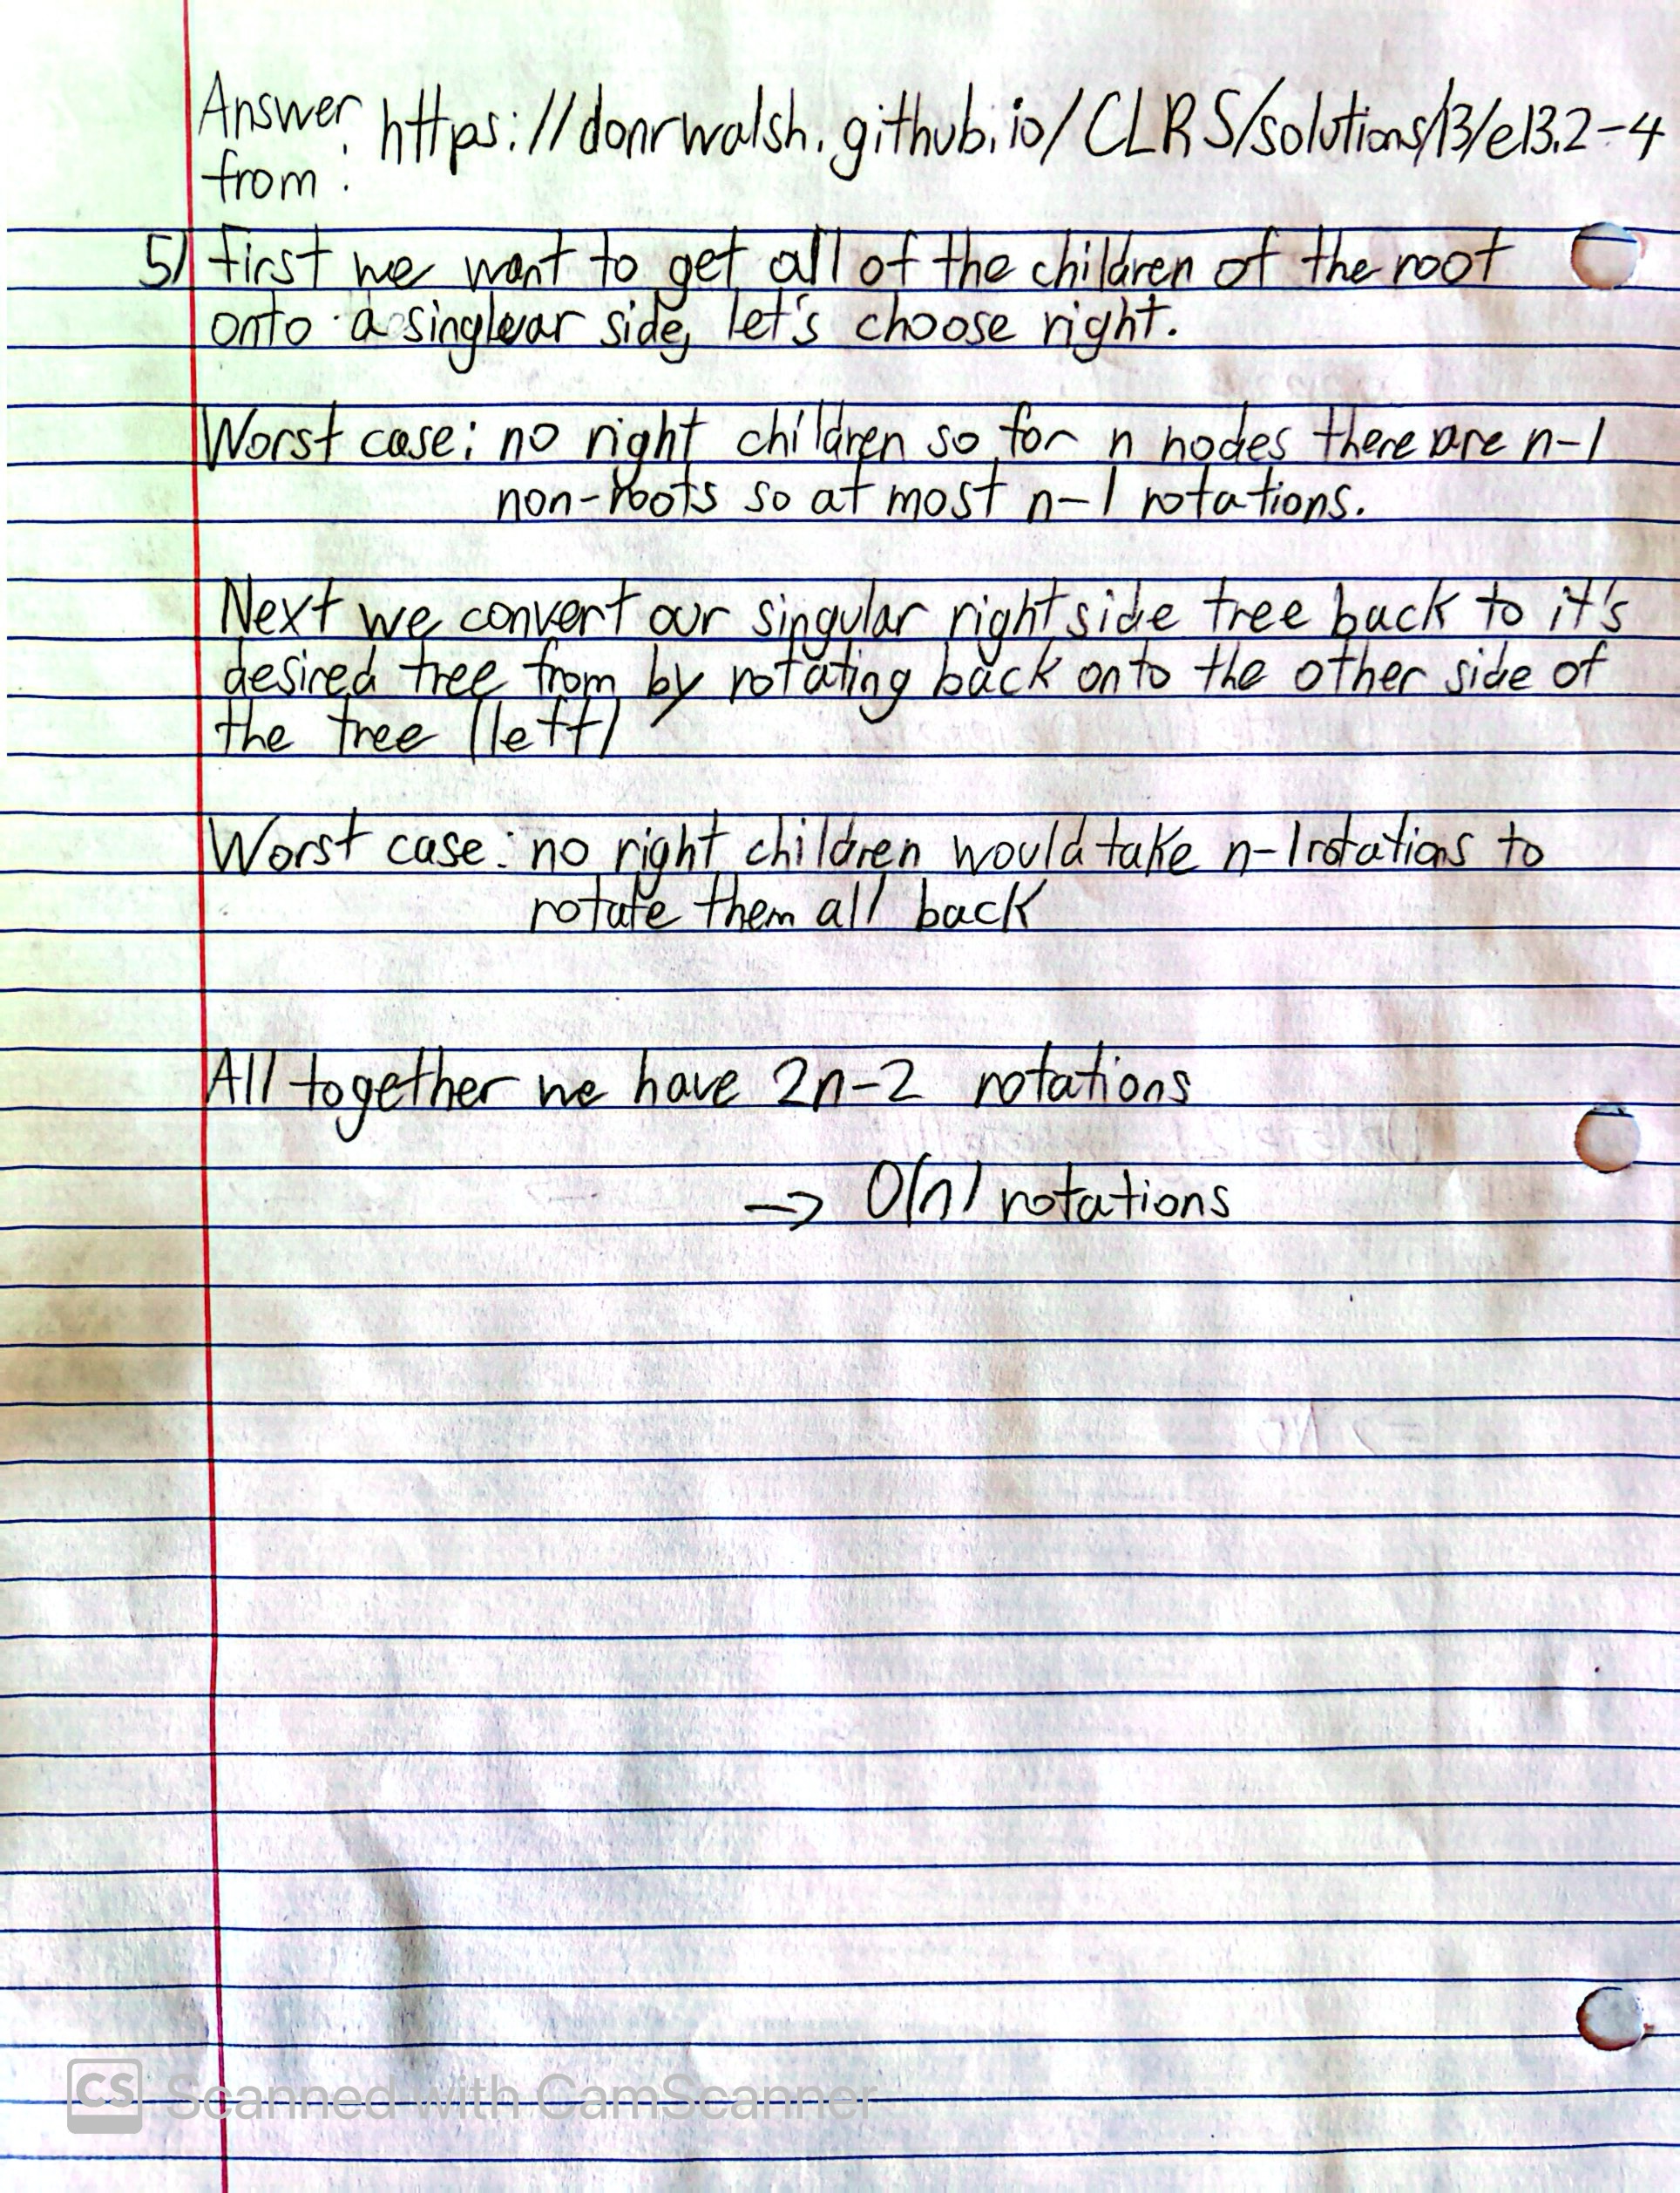 Answer from: https://donrwalsh.github.io/CLRS/solutions/13/e13.2-4
5) First we want to get all of the children of the root
onto a singluar side, let's choose right.
Worst case: no right children so for n nodes there are n-1
non-roots so at most n-1 rotations.
Next we convert our singular right side tree back to it's
desired tree from by rotating back onto the other side of
the tree (left)
Worst case: no right children would take n-1 rotations to
rotate them all back
All together we have 2n-2 rotations
→ O(n) rotations
CS Scanned with CamScanner